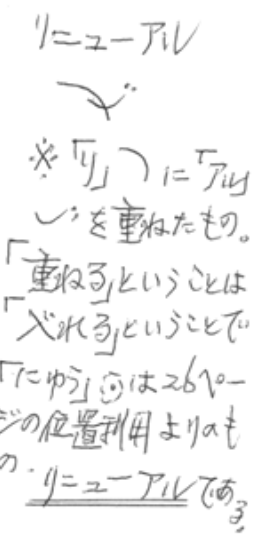 リニューアル
※「リ」⌒に「アル」
を重ねたもの。
「重ねる」ということは
「入れる」ということで
「にゅう」は26ペー
ジの位置利用よりのも
の.リニューアルである。